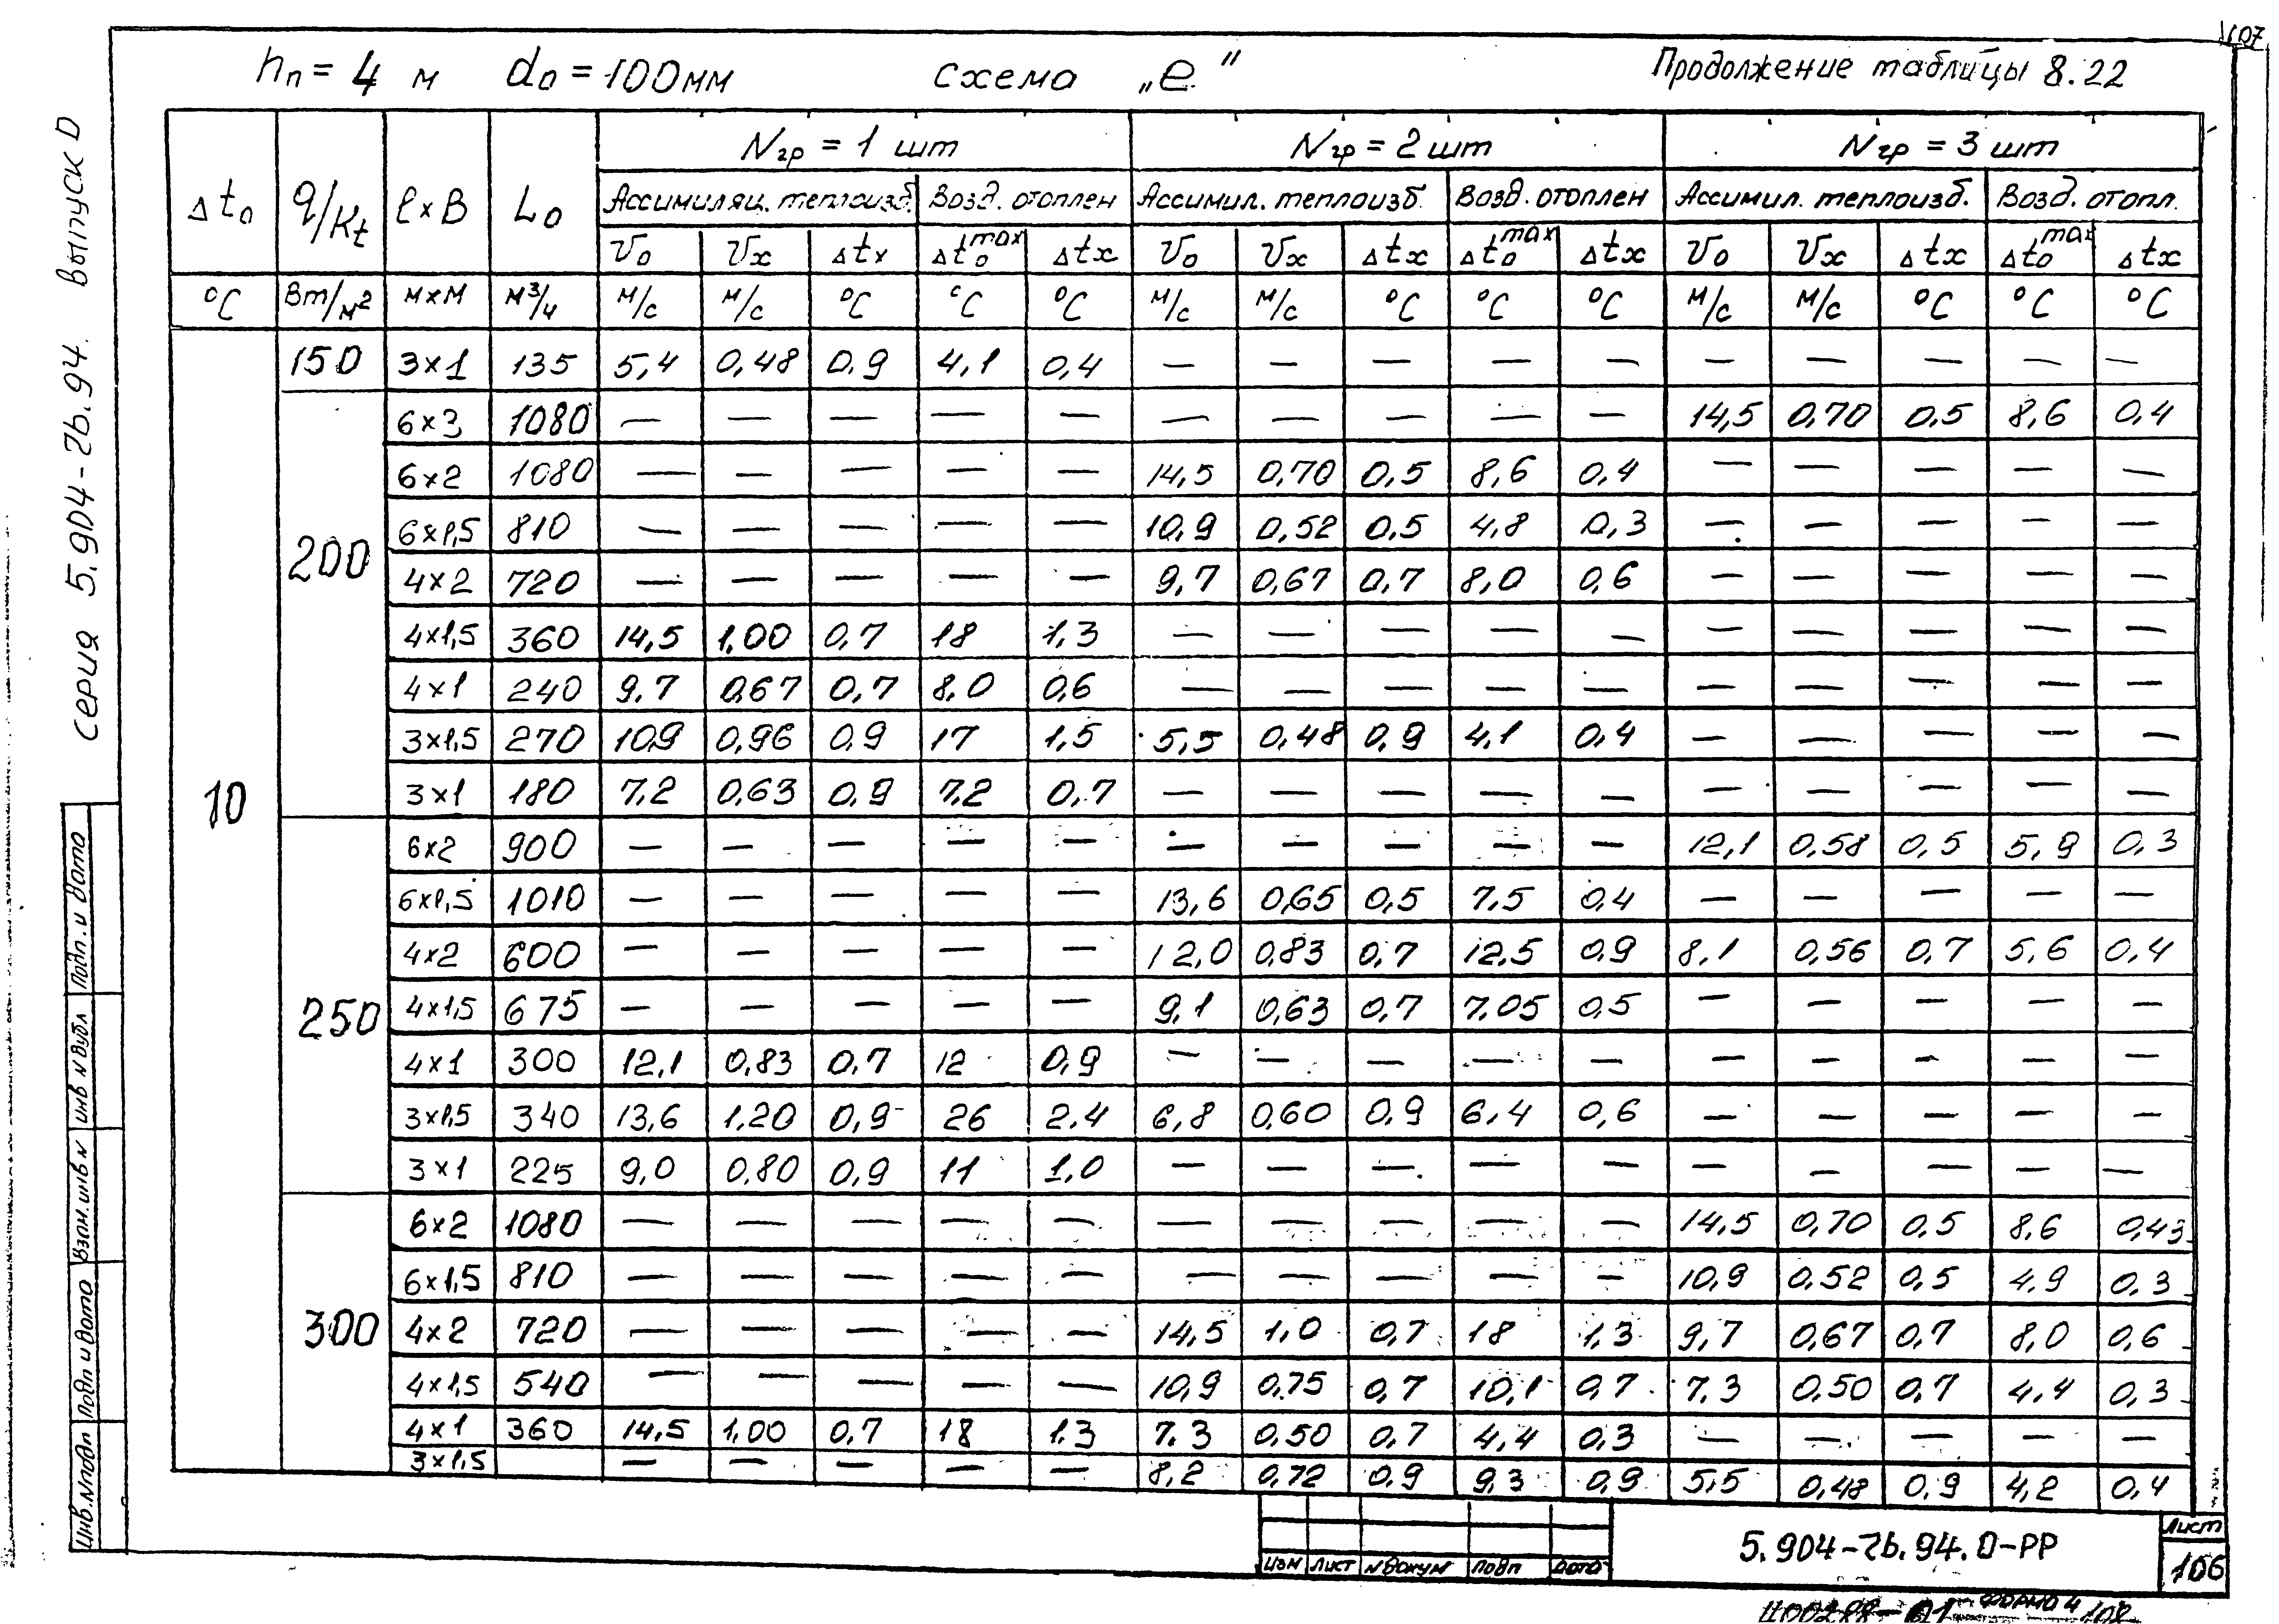 107
hп = 4 м d₀ = 100мм схема „е" Продолжение таблицы 8.22
серия 5.904-7Б.94. выпуск 0
Δt₀ q/Kt ℓ×В L₀ Nгр = 1 шт Nгр = 2 шт Nгр = 3 шт
Ассимиляц. теплоизб. Возд. отоплен Ассимил. теплоизб. Возд. отоплен Ассимил. теплоизб. Возд. отопл.
V₀ Vx Δtx Δt₀max Δtx V₀ Vx Δtx Δt₀max Δtx V₀ Vx Δtx Δt₀max Δtx
°C Вт/м² м×м м³/ч м/с м/с °C °C °C м/с м/с °C °C °C м/с м/с °C °C °C
10
150 3×1 135 5,4 0,48 0,9 4,1 0,4 — — — — — — — — — —
200
6×3 1080 — — — — — — — — — — 14,5 0,70 0,5 8,6 0,4
6×2 1080 — — — — — 14,5 0,70 0,5 8,6 0,4 — — — — —
6×1,5 810 — — — — — 10,9 0,52 0,5 4,8 0,3 — — — — —
4×2 720 — — — — — 9,7 0,67 0,7 8,0 0,6 — — — — —
4×1,5 360 14,5 1,00 0,7 18 1,3 — — — — — — — — — —
4×1 240 9,7 0,67 0,7 8,0 0,6 — — — — — — — — — —
3×1,5 270 10,9 0,96 0,9 17 1,5 5,5 0,48 0,9 4,1 0,4 — — — — —
3×1 180 7,2 0,63 0,9 7,2 0,7 — — — — — — — — — —
250
6×2 900 — — — — — — — — — — 12,1 0,58 0,5 5,9 0,3
6×1,5 1010 — — — — — 13,6 0,65 0,5 7,5 0,4 — — — — —
4×2 600 — — — — — 12,0 0,83 0,7 12,5 0,9 8,1 0,56 0,7 5,6 0,4
4×1,5 675 — — — — — 9,1 0,63 0,7 7,05 0,5 — — — — —
4×1 300 12,1 0,83 0,7 12 0,9 — — — — — — — — — —
3×1,5 340 13,6 1,20 0,9 26 2,4 6,8 0,60 0,9 6,4 0,6 — — — — —
3×1 225 9,0 0,80 0,9 11 1,0 — — — — — — — — — —
300
6×2 1080 — — — — — — — — — — 14,5 0,70 0,5 8,6 0,43
6×1,5 810 — — — — — — — — — — 10,9 0,52 0,5 4,9 0,3
4×2 720 — — — — — 14,5 1,0 0,7 18 1,3 9,7 0,67 0,7 8,0 0,6
4×1,5 540 — — — — — 10,9 0,75 0,7 10,1 0,7 7,3 0,50 0,7 4,4 0,3
4×1 360 14,5 1,00 0,7 18 1,3 7,3 0,50 0,7 4,4 0,3 — — — — —
3×1,5 — — — — — 8,2 0,72 0,9 9,3 0,9 5,5 0,48 0,9 4,2 0,4
Подп. и дата
Инв N дубл
Взам. инв N
Подп и дата
Инв. N подп
изм лист N докум подп дата
5.904-7Б.94.0-РР
Лист
106
Ц00288-01 формо 4 108